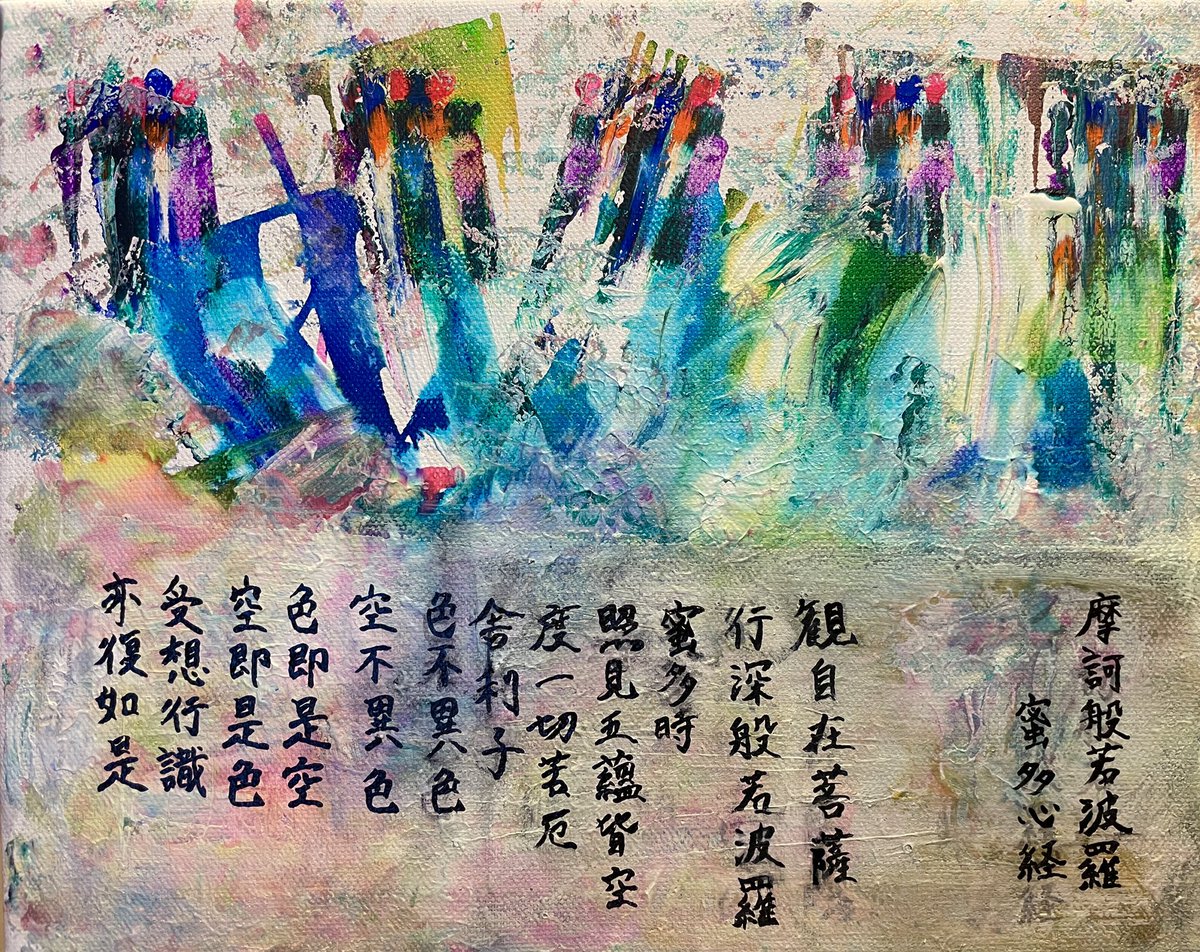 摩訶般若波羅
蜜多心経
観自在菩薩
行深般若波羅
蜜多時
照見五蘊皆空
度一切苦厄
舎利子
色不異色
空不異色
色即是空
空即是色
受想行識
亦復如是